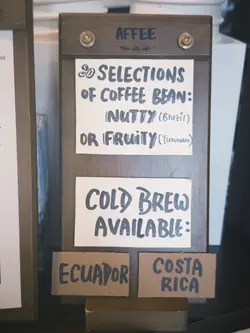 AFFEE
SELECTIONS
OF COFFEE BEAN:
NUTTY (Brazil)
OR FRUITY (Yunnan)
COLD BREW
AVAILABLE:
ECUADOR
COSTA
RICA